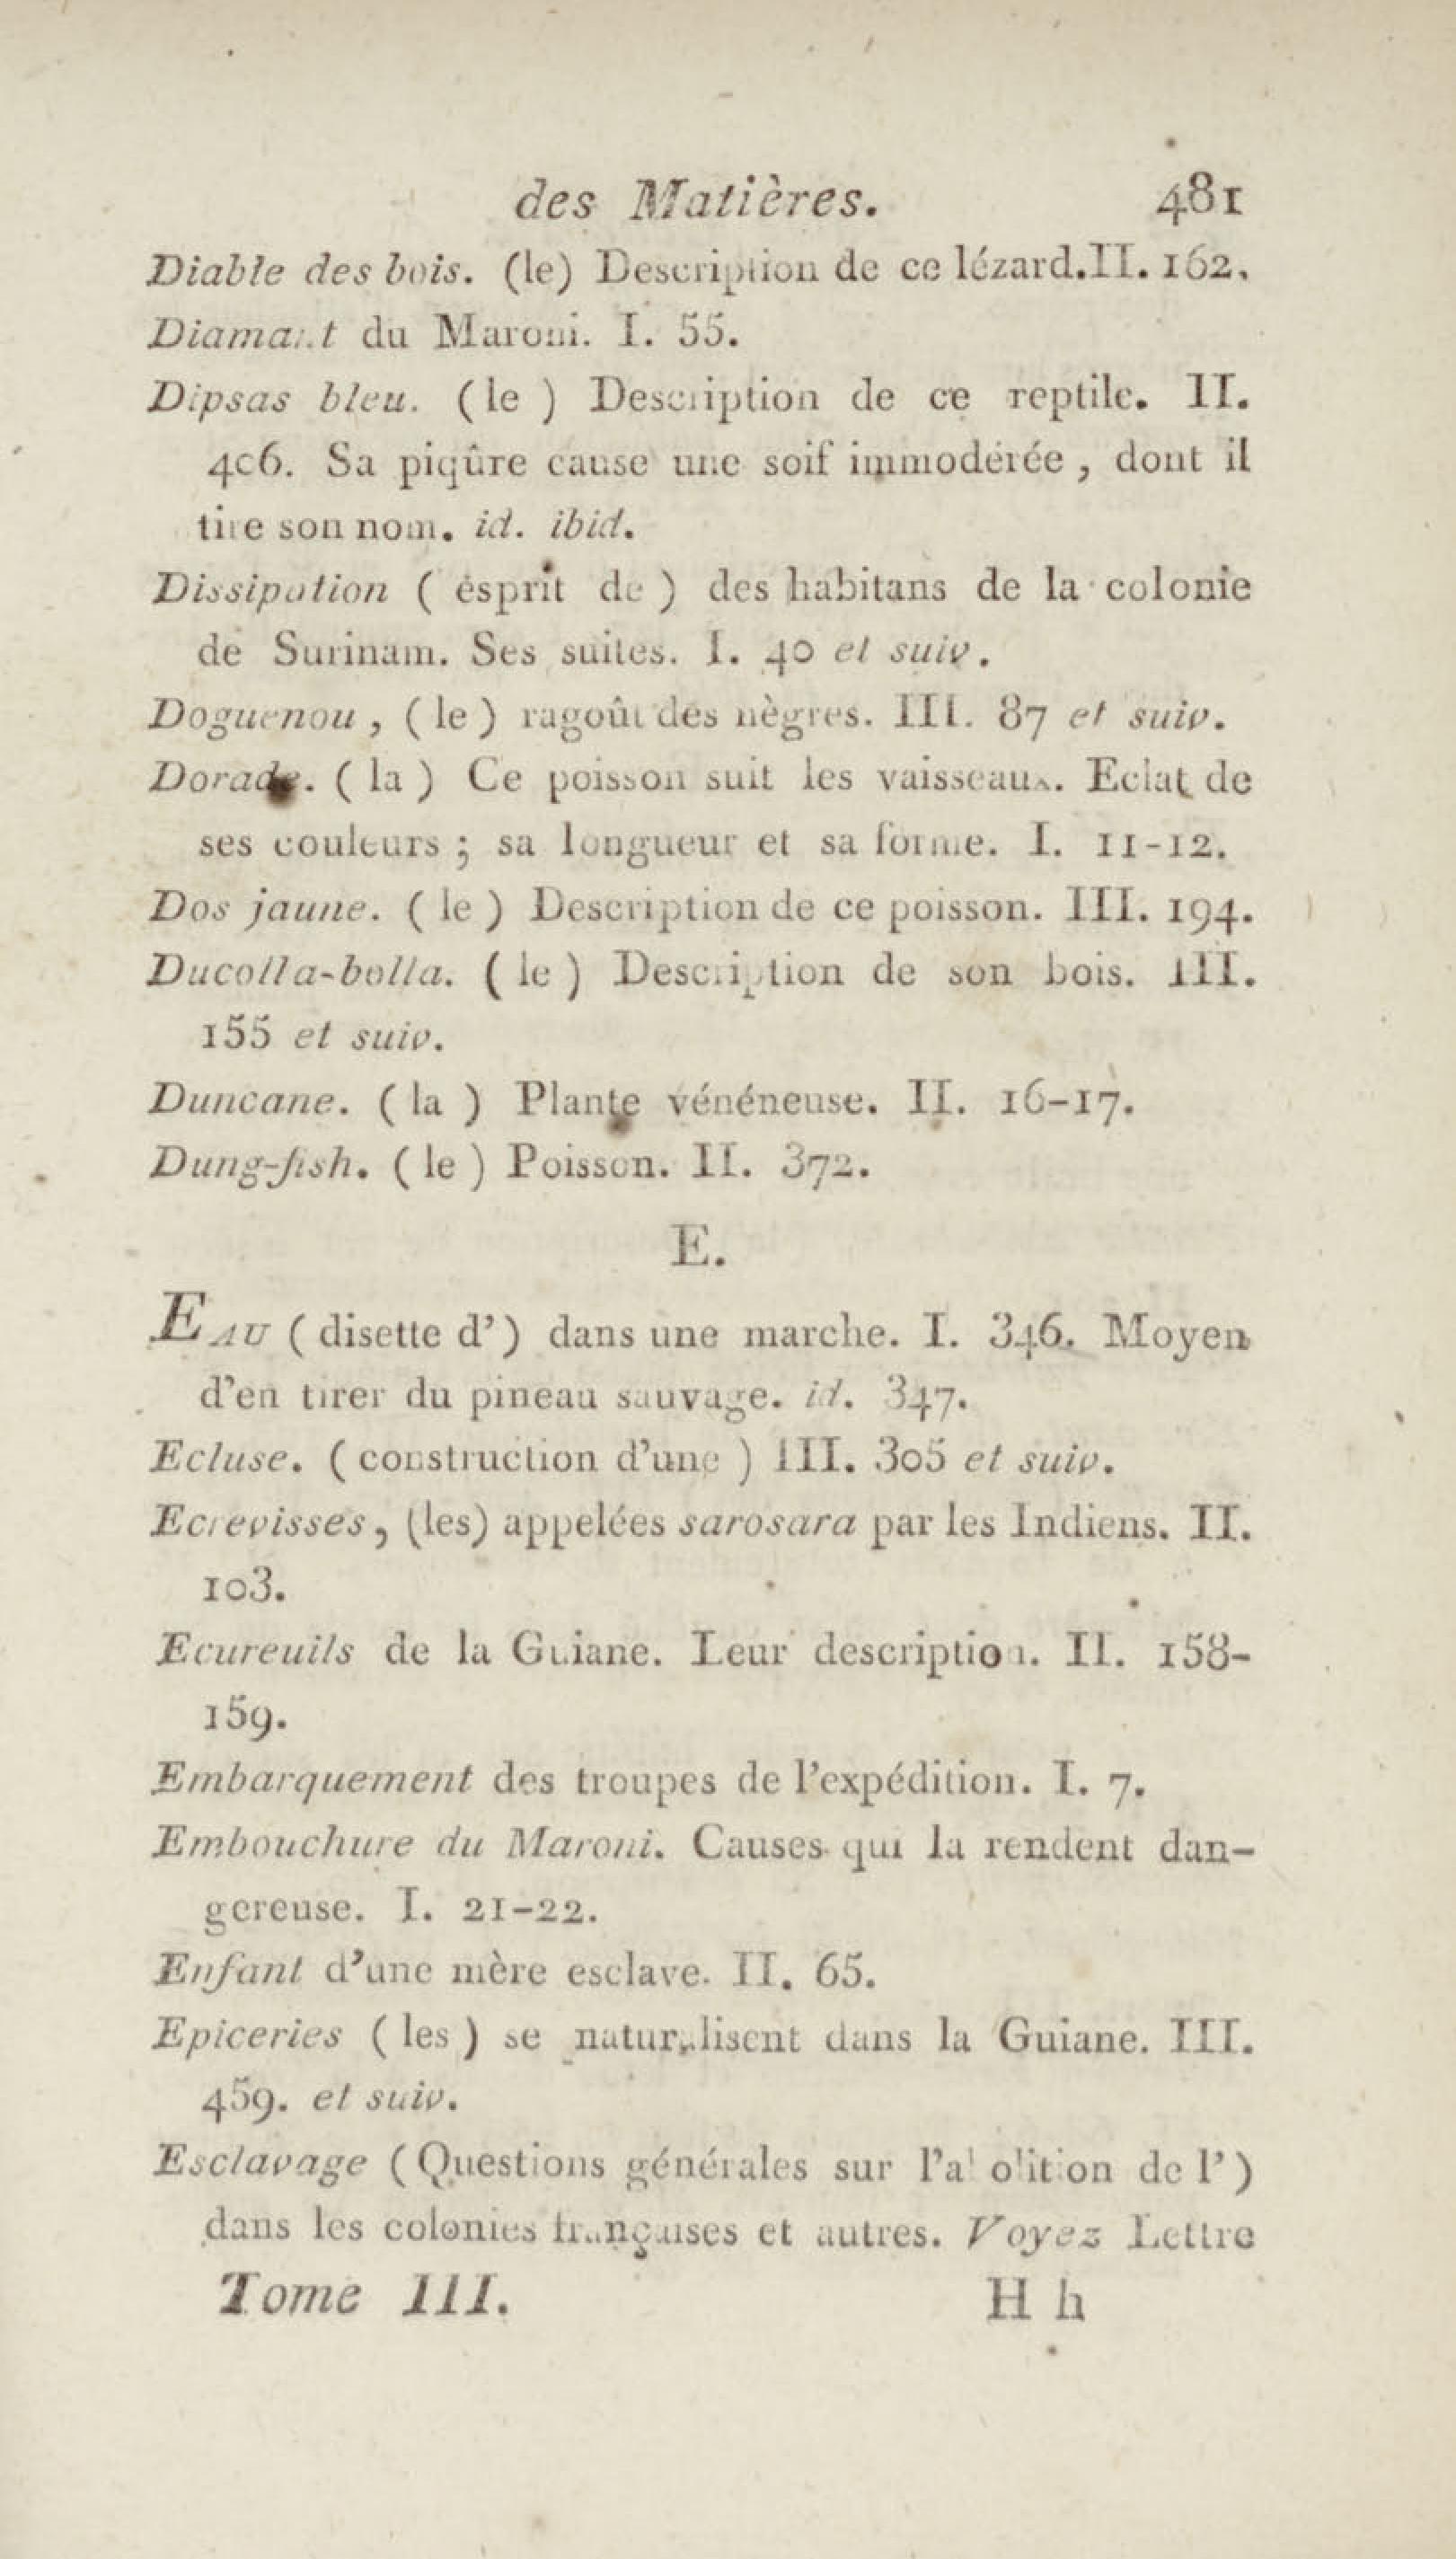 des Matières. 481
Diable des bois. (le) Description de ce lézard. II. 162.
Diamant du Maroni. I. 55.
Dipsas bleu. (le) Description de ce reptile. II.
406. Sa piqûre cause une soif immodérée, dont il
tire son nom. id. ibid.
Dissipation (esprit de) des habitans de la colonie
de Surinam. Ses suites. I. 40 et suiv.
Doguenou, (le) ragoût des nègres. III. 87 et suiv.
Dorade. (la) Ce poisson suit les vaisseaux. Eclat de
ses couleurs; sa longueur et sa forme. I. 11-12.
Dos jaune. (le) Description de ce poisson. III. 194.
Ducolla-bolla. (le) Description de son bois. III.
155 et suiv.
Duncane. (la) Plante vénéneuse. II. 16-17.
Dung-fish. (le) Poisson. II. 372.
E.
EAU (disette d') dans une marche. I. 346. Moyen
d'en tirer du pineau sauvage. id. 347.
Ecluse. (construction d'une) III. 305 et suiv.
Ecrevisses, (les) appelées sarosara par les Indiens. II.
103.
Ecureuils de la Guiane. Leur description. II. 158-
159.
Embarquement des troupes de l'expédition. I. 7.
Embouchure du Maroni. Causes qui la rendent dan-
gereuse. I. 21-22.
Enfant d'une mère esclave. II. 65.
Epiceries (les) se naturalisent dans la Guiane. III.
459. et suiv.
Esclavage (Questions générales sur l'abolition de l')
dans les colonies françaises et autres. Voyez Lettre
Tome III. H h